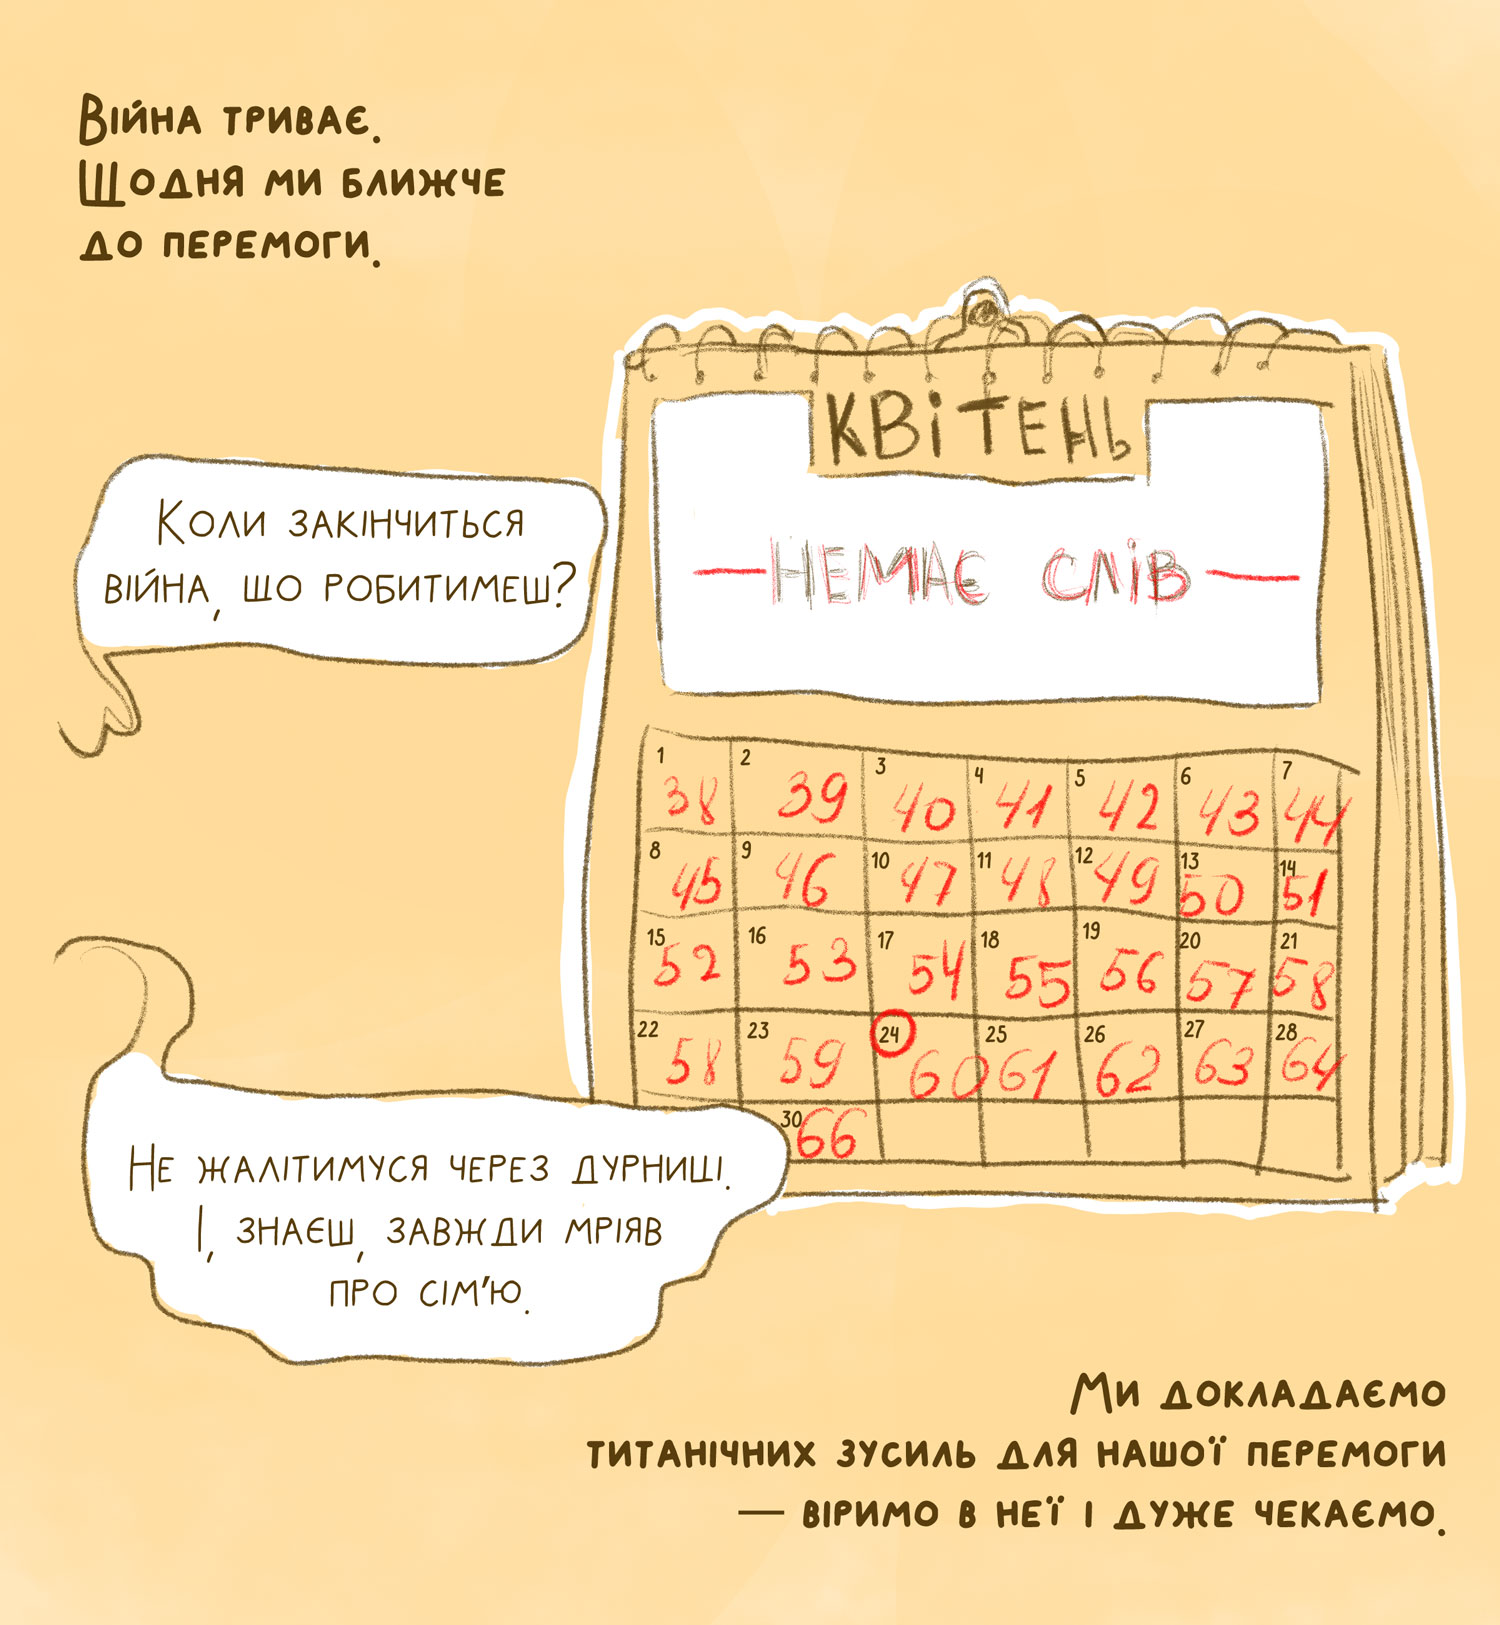 Війна триває.
Щодня ми ближче
до перемоги.
КВіТЕНЬ
Коли закінчиться
війна, що робитимеш?
—НЕМАЄ СЛІВ—
1 2 3 4 5 6 7
38 39 40 41 42 43 44
8 9 10 11 12 13 14
45 46 47 48 49 50 51
15 16 17 18 19 20 21
52 53 54 55 56 57 58
22 23 24 25 26 27 28
58 59 60 61 62 63 64
30
66
Не жалітимуся через дурниці.
І, знаєш, завжди мріяв
про сім'ю.
Ми докладаємо
титанічних зусиль для нашої перемоги
— віримо в неї і дуже чекаємо.